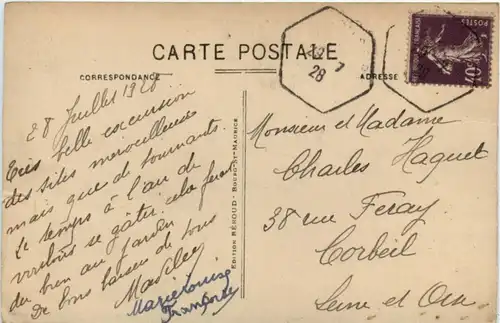 CARTE POSTALE
CORRESPONDANCE
ADRESSE
28 Juillet 1928
Très belle excursion
des sites merveilleuses
mais que de tournants.
Le temps à l'air de
vouloir se gâter cela fera
du bien au jardin
De bons baisers de tous
Marcelle
Marie Louise
Françoise
EDITION REROUD - BOURG-ST-MAURICE
28 7
28
POSTES
40
Monsieur et Madame
Charles Haquet
38 rue Feray
Corbeil
Seine et Oise